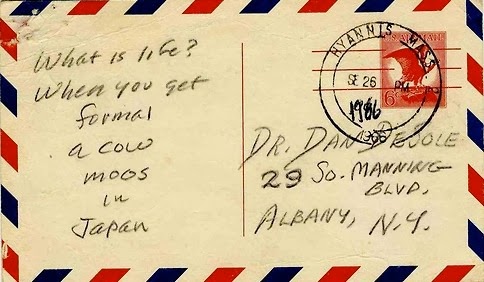 What is life?
When you get
formal
a cow
moos
in
Japan
HYANNIS MASS
SE 26
PM
1966
1966
U.S. AIR MAIL
6¢
DR. DAN DEJOLE
29 So. MANNING
BLVD.
ALBANY, N.Y.